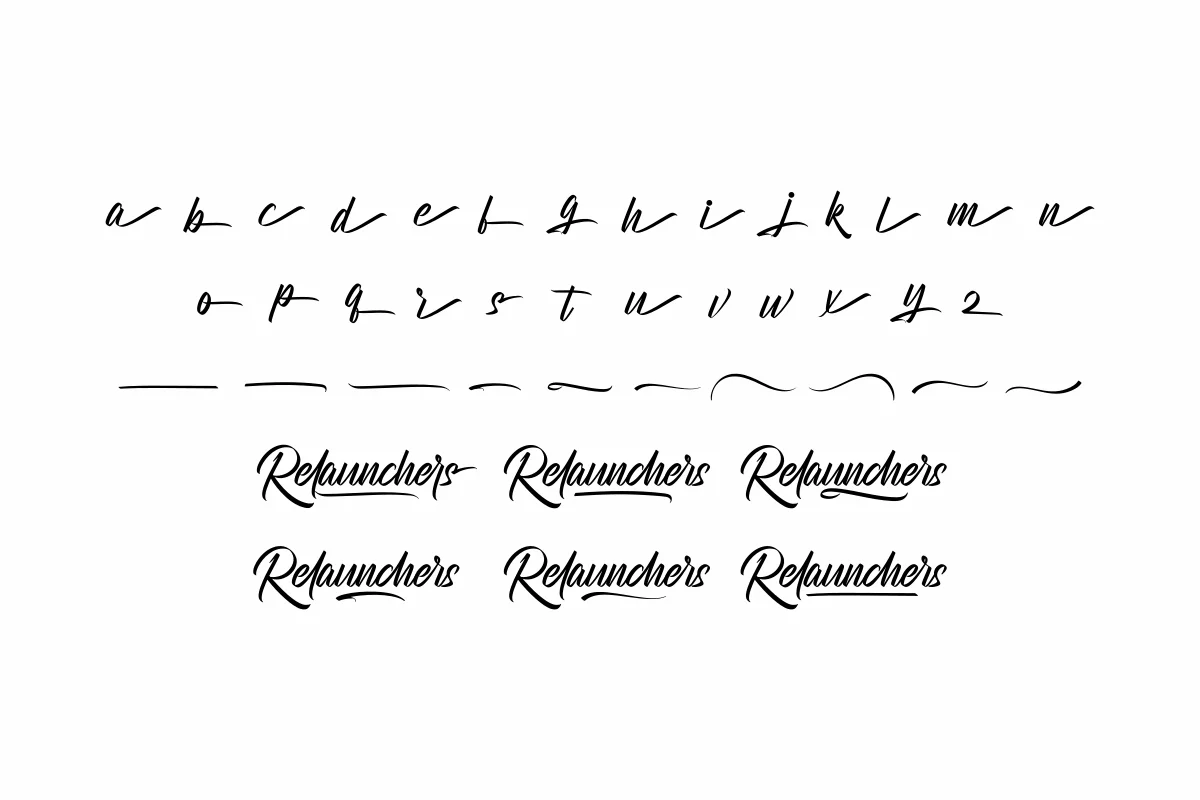 a b c d e f g h i j k l m n
o p q r s t u v w x y z
Relaunchers Relaunchers Relaunchers
Relaunchers Relaunchers Relaunchers